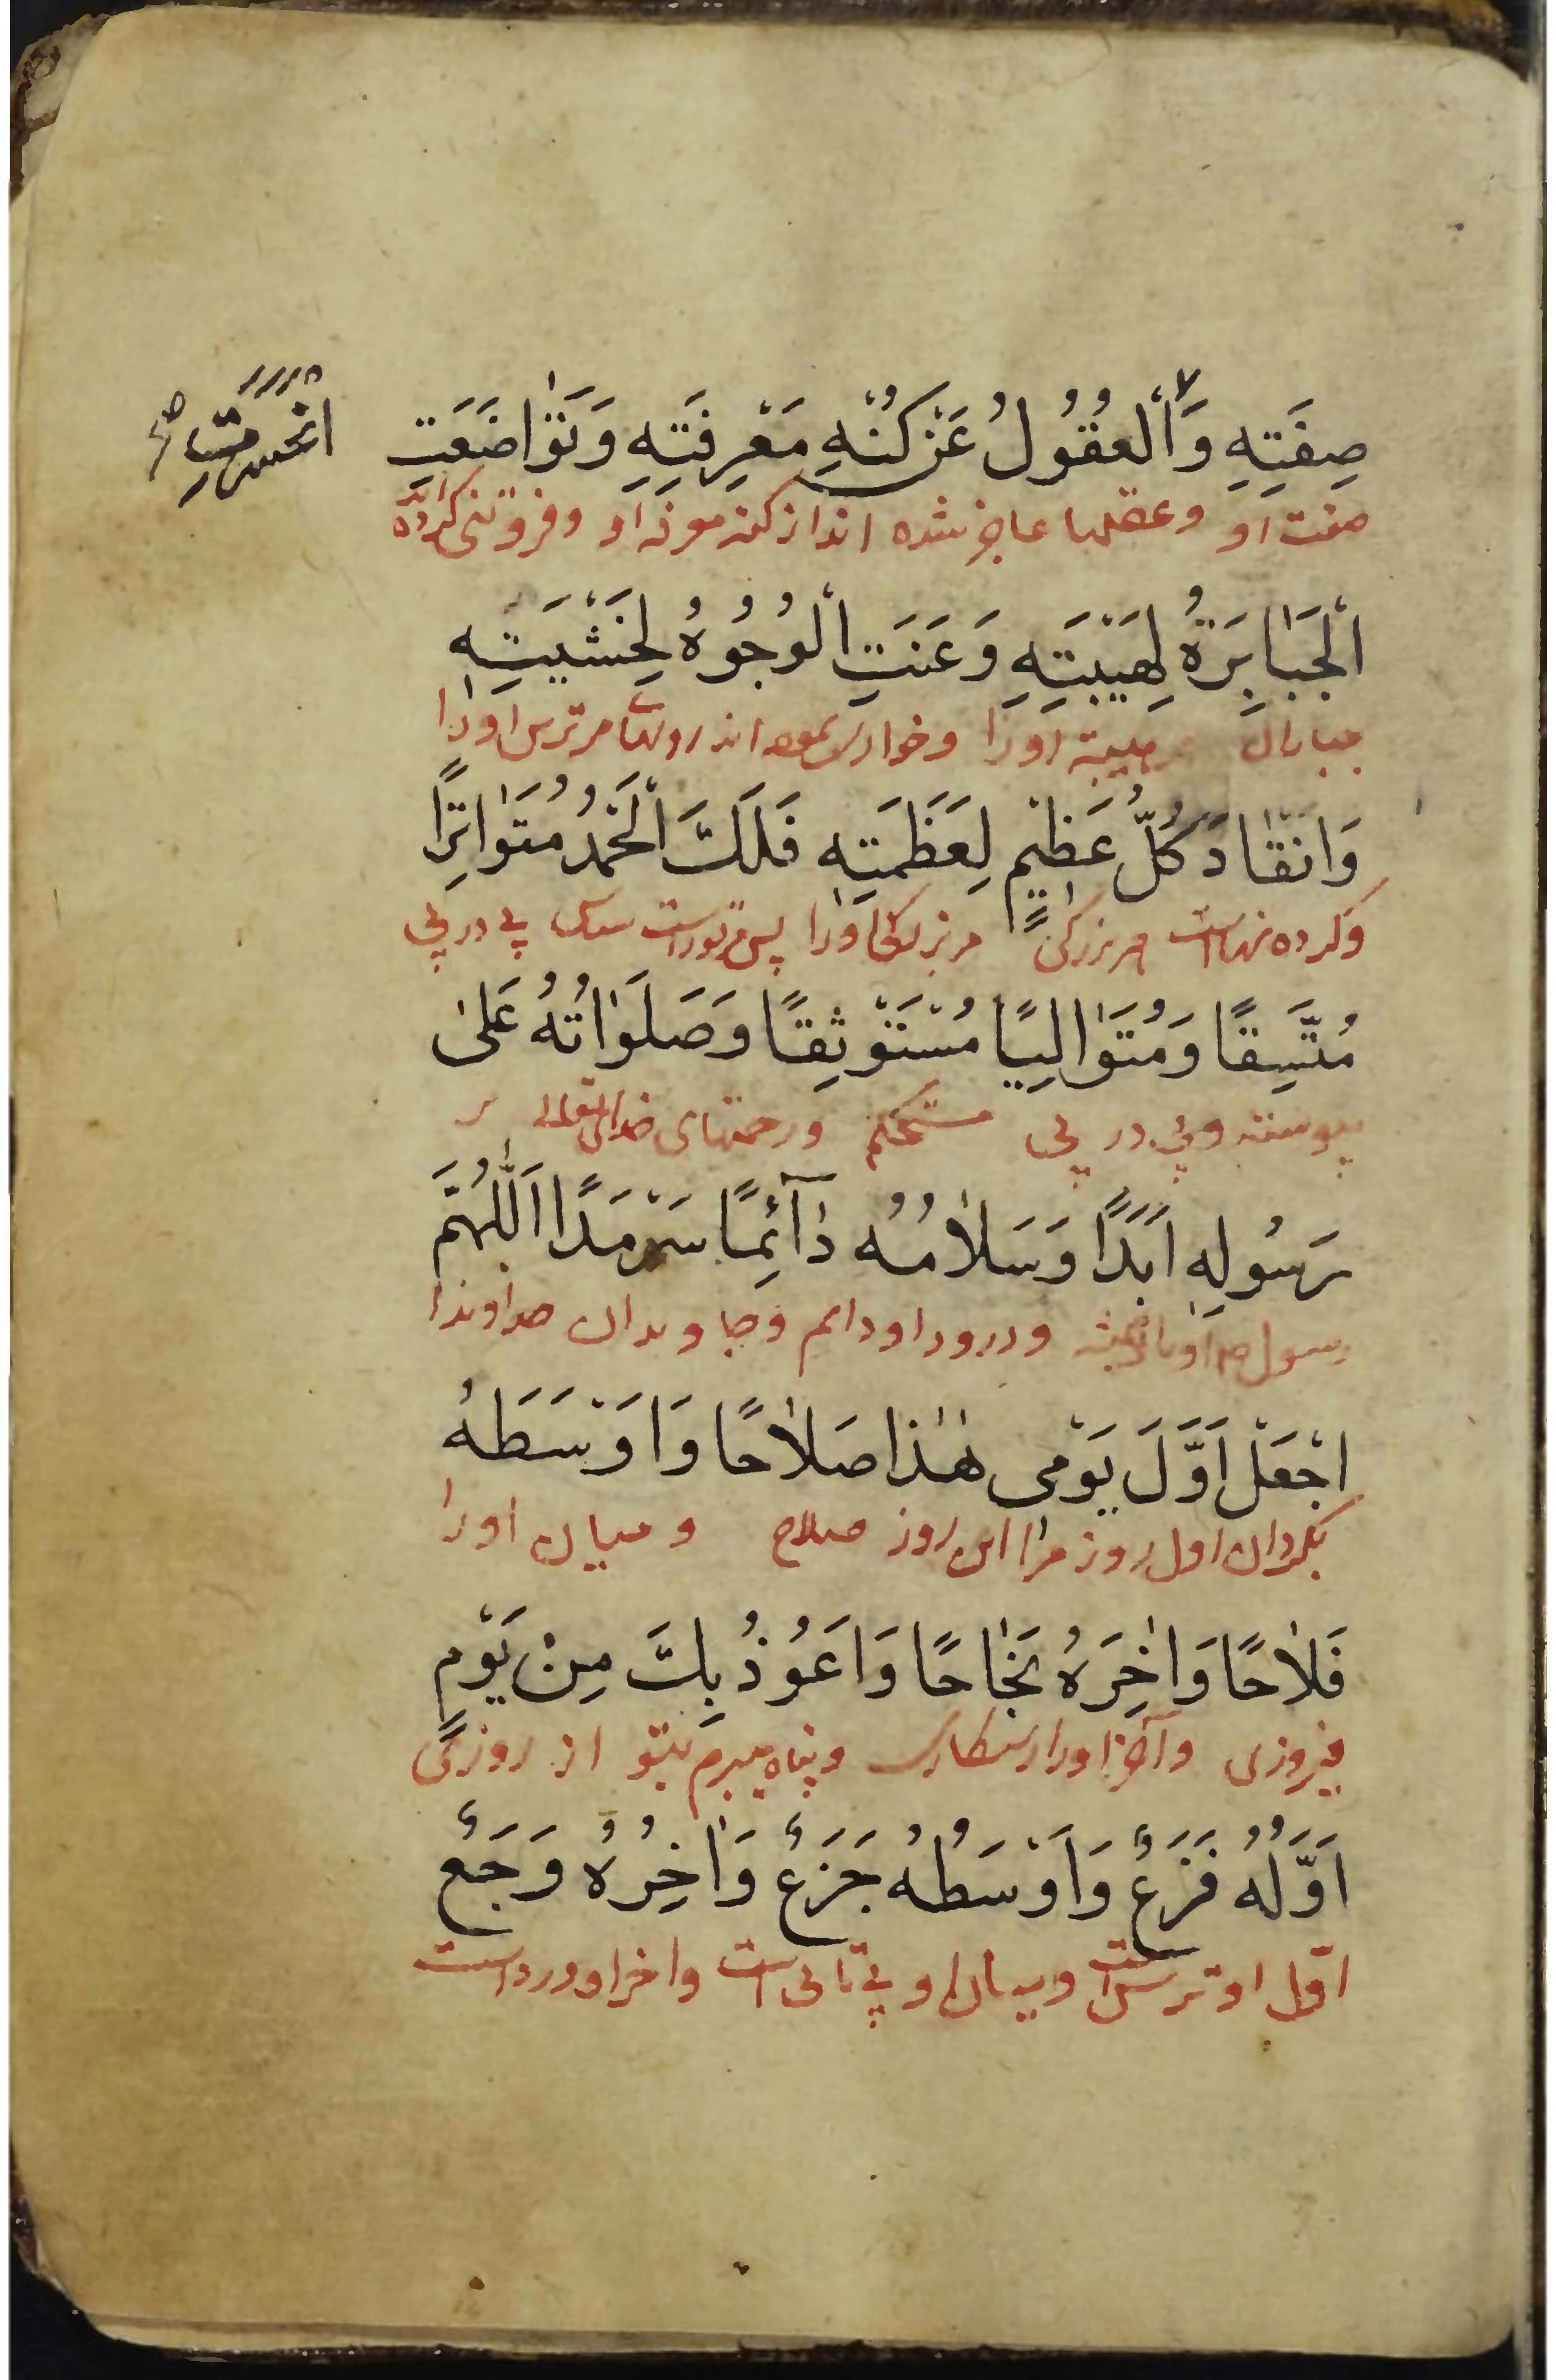 صِفَتِهِ وَالْعُقُولُ عَنْ كُنْهِ مَعْرِفَتِهِ وَتَوٰاضَعَتِ
انحسرت صح
صفت او وعقلها عاجز شده اند از کنه معرفة او وفروتنی کرده اند
الْجَبٰابِرَةُ لِهَيْبَتِهِ وَعَنَتِ الْوُجُوهُ لِخَشْيَتِهِ
جباران هیبته او را وخواری نموده اند رویها مر ترس او را
وَانْقٰادَ كُلُّ عَظِيْمٍ لِعَظَمَتِهِ فَلَكَ الْحَمْدُ مُتَوٰاتِرًا
وکرده نهاده است هر بزرگی مر بزرگی او را پس مر تو راست پی در پی
مُتَّسِقًا وَمُتَوٰالِيًا مُسْتَوْثِقًا وَصَلَوٰاتُهُ عَلىٰ
پیوسته وپی در پی مستحکم ورحمتهای خدای تعالی بر
رَسُولِهِ اَبَدًا وَسَلاٰمُهُ دٰآئِمًا سَرْمَدًا اَللّٰهُمَّ
رسول او همیشه ودرود او دائم وجاویدان خداوندا
اجْعَلْ اَوَّلَ يَوْمى هٰذا صَلاٰحًا وَاَوْسَطَهُ
بگردان اول روز مرا این روز صلاح ومیان او را
فَلاٰحًا وَاٰخِرَهُ نَجٰاحًا وَاَعُوذُ بِكَ مِنْ يَوْمٍ
فیروزی وآخر او را رستگاری وپناه میبرم بتو از روزی که
اَوَّلُهُ فَزَعٌ وَاَوْسَطُهُ جَزَعٌ وَاٰخِرُهُ وَجَعٌ
اوّل او ترس است ومیان او بی تابی است واخر او درد است